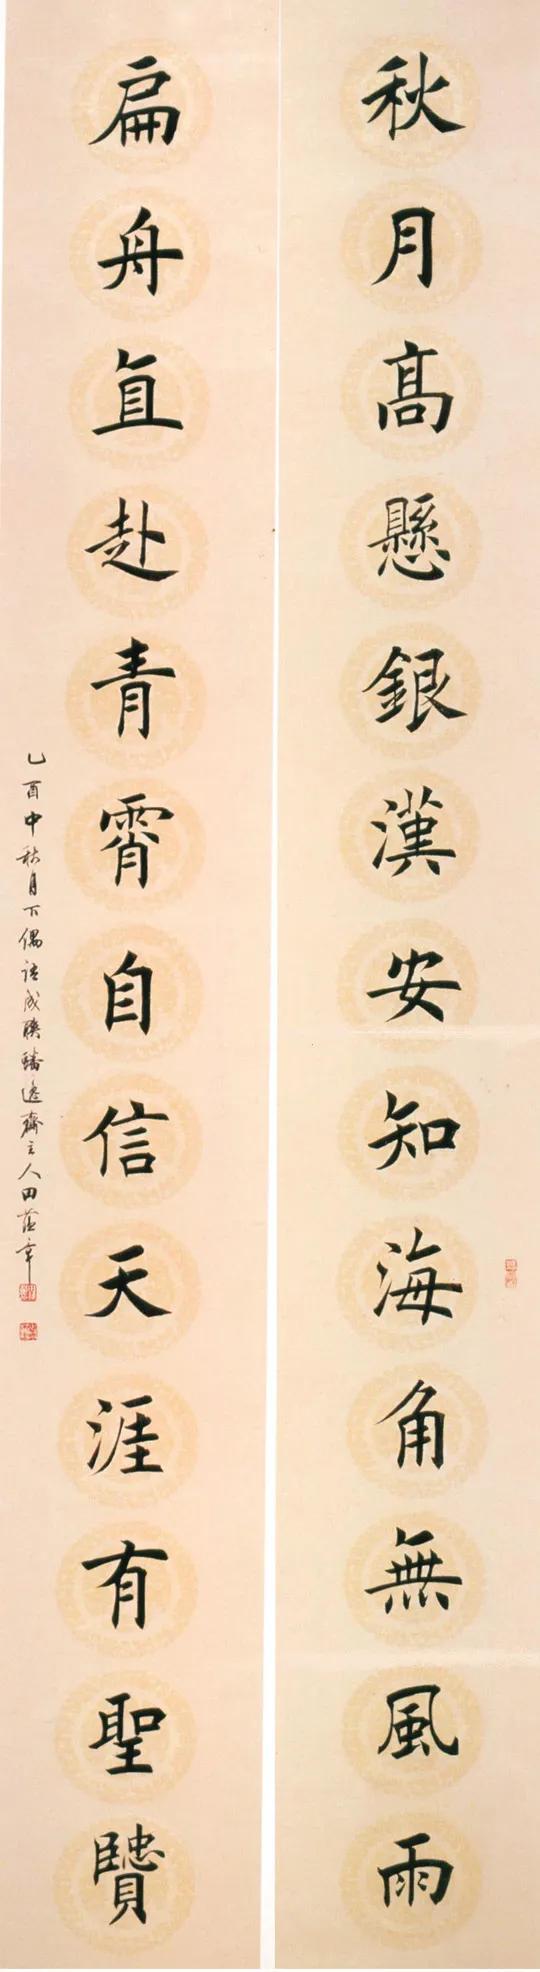 秋月高懸銀漢安知海角無風雨
扁舟直赴青霄自信天涯有聖賢
乙酉中秋月下偶詠成聯蟠遙齋主人田蘊章